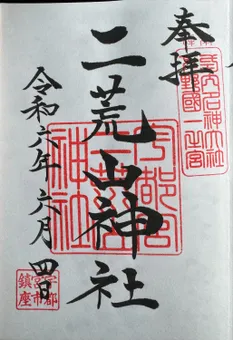 奉拝
二荒山神社
令和六年六月四日
宇都宮
二荒山
神社
下野國一之宮
宇都宮市
鎮座